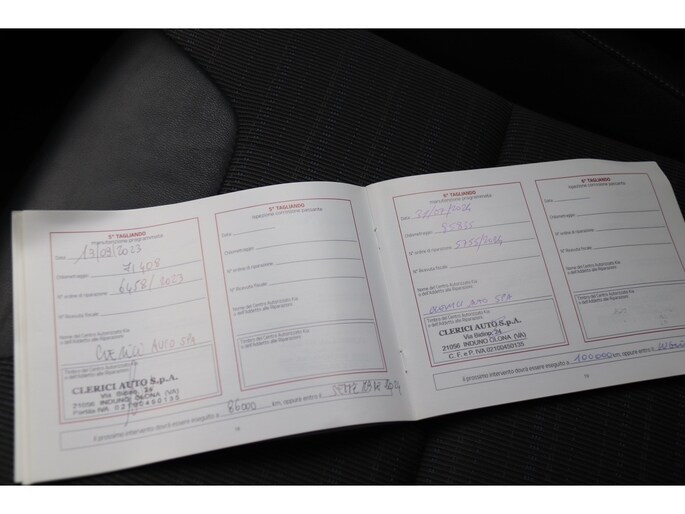 5° TAGLIANDO
manutenzione programmata
Data 13/09/2023
Chilometraggio 71408
N° ordine di riparazione 6458/2023
N° Ricevuta fiscale
Nome del Centro Autorizzato Kia
e dell'Addetto alle Riparazioni
CLERICI AUTO SPA
Timbro del Centro Autorizzato Kia
e dell'Addetto alle Riparazioni
CLERICI AUTO S.p.A.
Via Bidino, 24
21056 INDUNO OLONA (VA)
Partita IVA 02100450135
5° TAGLIANDO
ispezione corrosione passante
Data
Chilometraggio
N° ordine di riparazione
N° Ricevuta fiscale
Nome del Centro Autorizzato Kia
e dell'Addetto alle Riparazioni
Timbro del Centro Autorizzato Kia
e dell'Addetto alle Riparazioni
Il prossimo intervento dovrà essere eseguito a 86000 km, oppure entro il SETTEMBRE 2024
6° TAGLIANDO
manutenzione programmata
Data
Chilometraggio
N° ordine di riparazione 5755/2024
N° Ricevuta fiscale
Nome del Centro Autorizzato Kia
e dell'Addetto alle Riparazioni
CLERICI AUTO SPA
Timbro del Centro Autorizzato Kia
e dell'Addetto alle Riparazioni
CLERICI AUTO S.p.A.
Via Bidino, 24
21056 INDUNO OLONA (VA)
C. F. e P. IVA 02100450135
6° TAGLIANDO
ispezione corrosione passante
Data
Chilometraggio
N° ordine di riparazione
N° Ricevuta fiscale
Nome del Centro Autorizzato Kia
e dell'Addetto alle Riparazioni
Timbro del Centro Autorizzato Kia
e dell'Addetto alle Riparazioni
Il prossimo intervento dovrà essere eseguito a 100000 km, oppure entro il